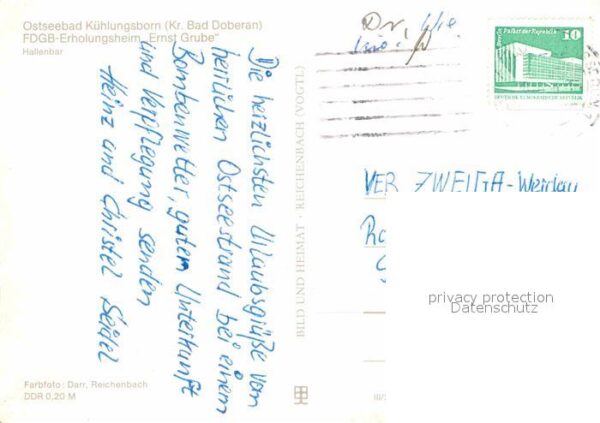 Ostseebad Kühlungsborn (Kr. Bad Doberan)
FDGB-Erholungsheim „Ernst Grube"
Hallenbar
Die herzlichsten Urlaubsgrüße vom
herrlichen Ostseestrand bei einem
Bombenwetter, gutem Unterkunft
und Verpflegung senden
Heinz und Christel Seidel
Farbfoto: Darr, Reichenbach
DDR 0,20 M
BILD UND HEIMAT · REICHENBACH (VOGTL)
Dr, Wie
Berlin, Palast der Republik
10
DEUTSCHE DEMOKRATISCHE REPUBLIK
VEB ZWEIGA-Werdau
privacy protection
Datenschutz